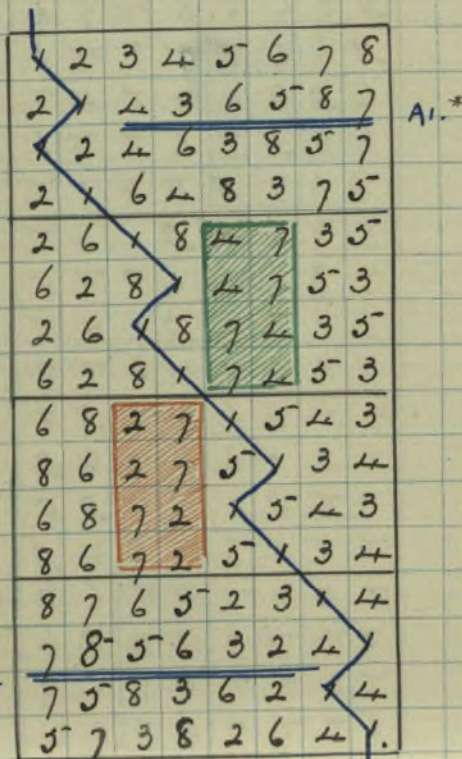 1 2 3 4 5 6 7 8
2 1 4 3 6 5 8 7 A1.*
1 2 4 6 3 8 5 7
2 1 6 4 8 3 7 5
2 6 1 8 4 7 3 5
6 2 8 1 4 7 5 3
2 6 1 8 7 4 3 5
6 2 8 1 7 4 5 3
6 8 2 7 1 5 4 3
8 6 2 7 5 1 3 4
6 8 7 2 1 5 4 3
8 6 7 2 5 1 3 4
8 7 6 5 2 3 1 4
7 8 5 6 3 2 4 1
7 5 8 3 6 2 1 4
5 7 3 8 2 6 4 1.